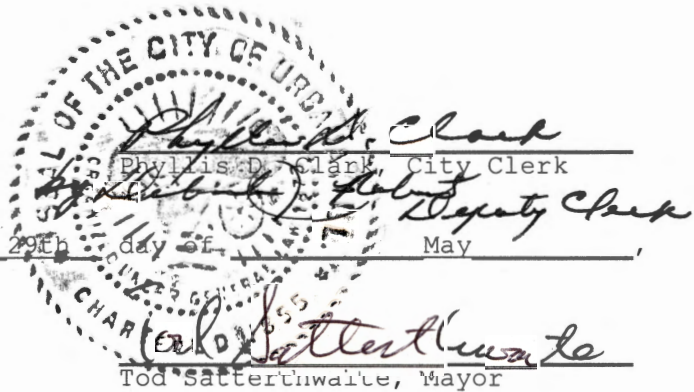 SEAL OF THE CITY OF URBA
Phyllis D. Clark
Phyllis D. Clark, City Clerk
by Deputy Clerk
29th day of May,
CHAR
Satterthwaite
Tod Satterthwaite, Mayor